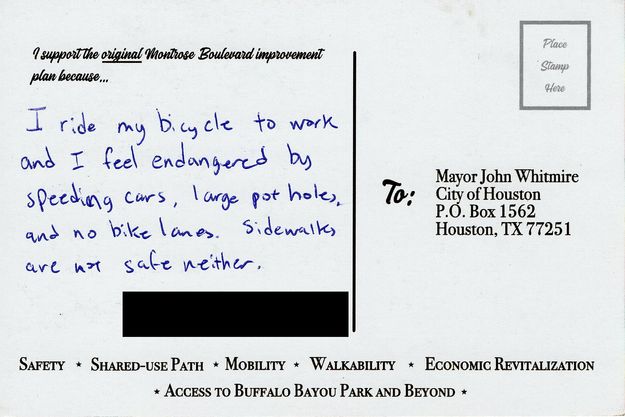 I support the original Montrose Boulevard improvement
plan because...
I ride my bicycle to work
and I feel endangered by
speeding cars, large potholes,
and no bike lanes. Sidewalks
are not safe neither.
Place
Stamp
Here
To:
Mayor John Whitmire
City of Houston
P.O. Box 1562
Houston, TX 77251
Safety ⋆ Shared-use Path ⋆ Mobility ⋆ Walkability ⋆ Economic Revitalization
⋆ Access to Buffalo Bayou Park and Beyond ⋆